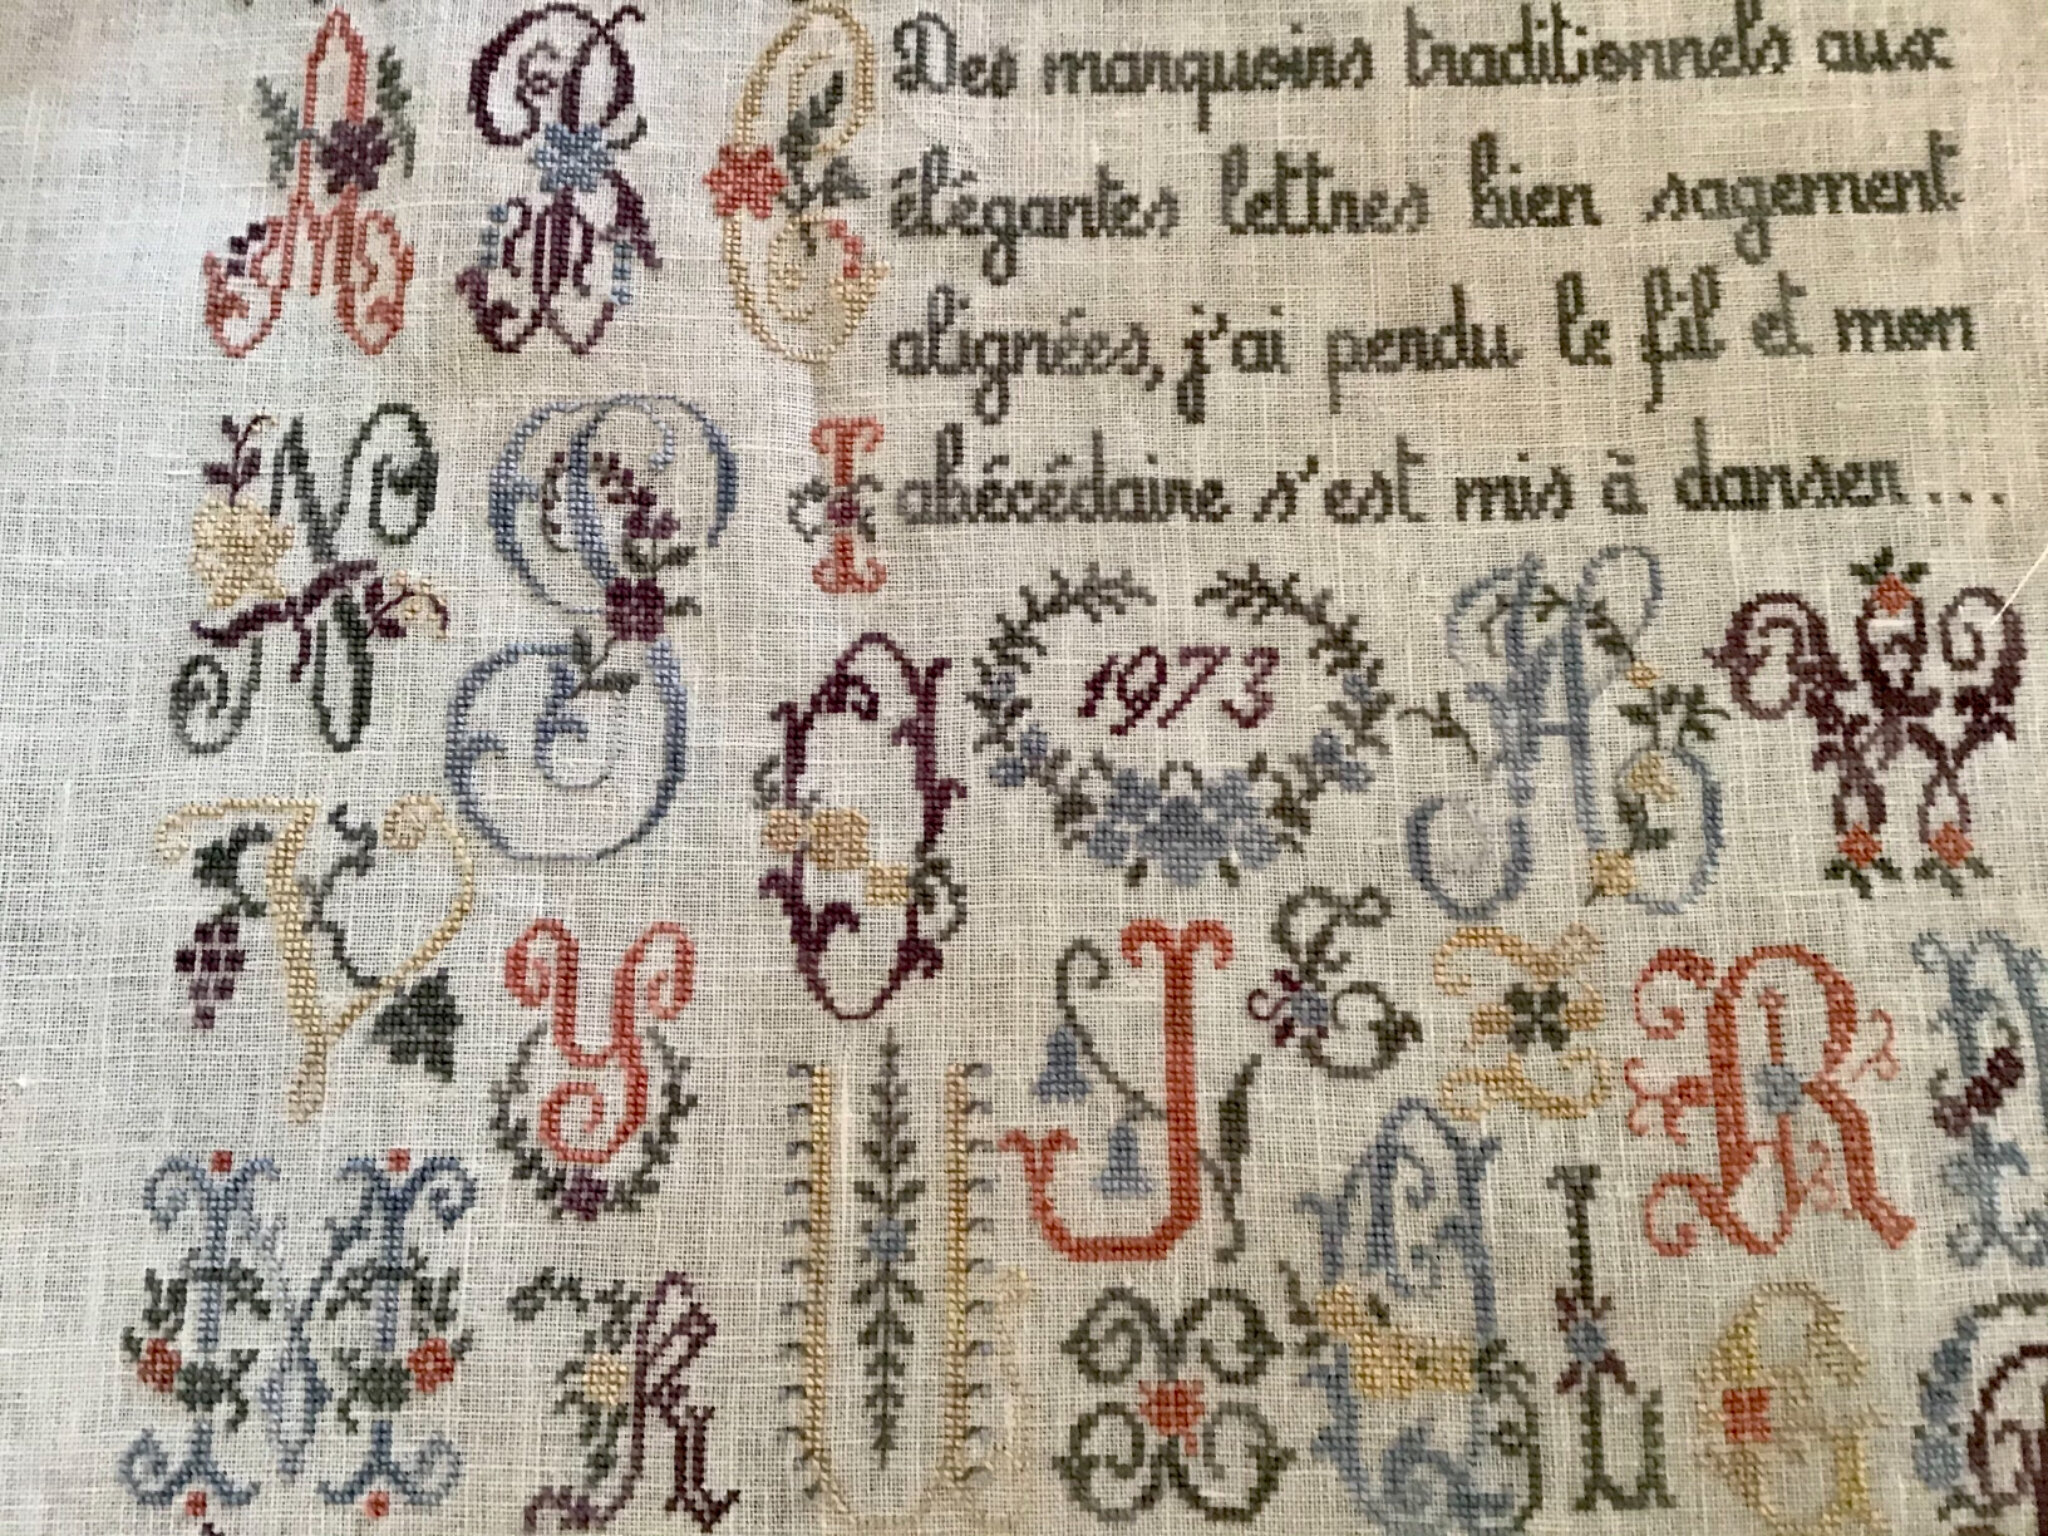 A R C
Des marquoirs traditionnels aux
élégantes lettres bien sagement
alignées, j'ai perdu le fil et mon
abécédaire s'est mis à danser...
N S I
O 1973 H W
V Y J E Z R
M K U X L G